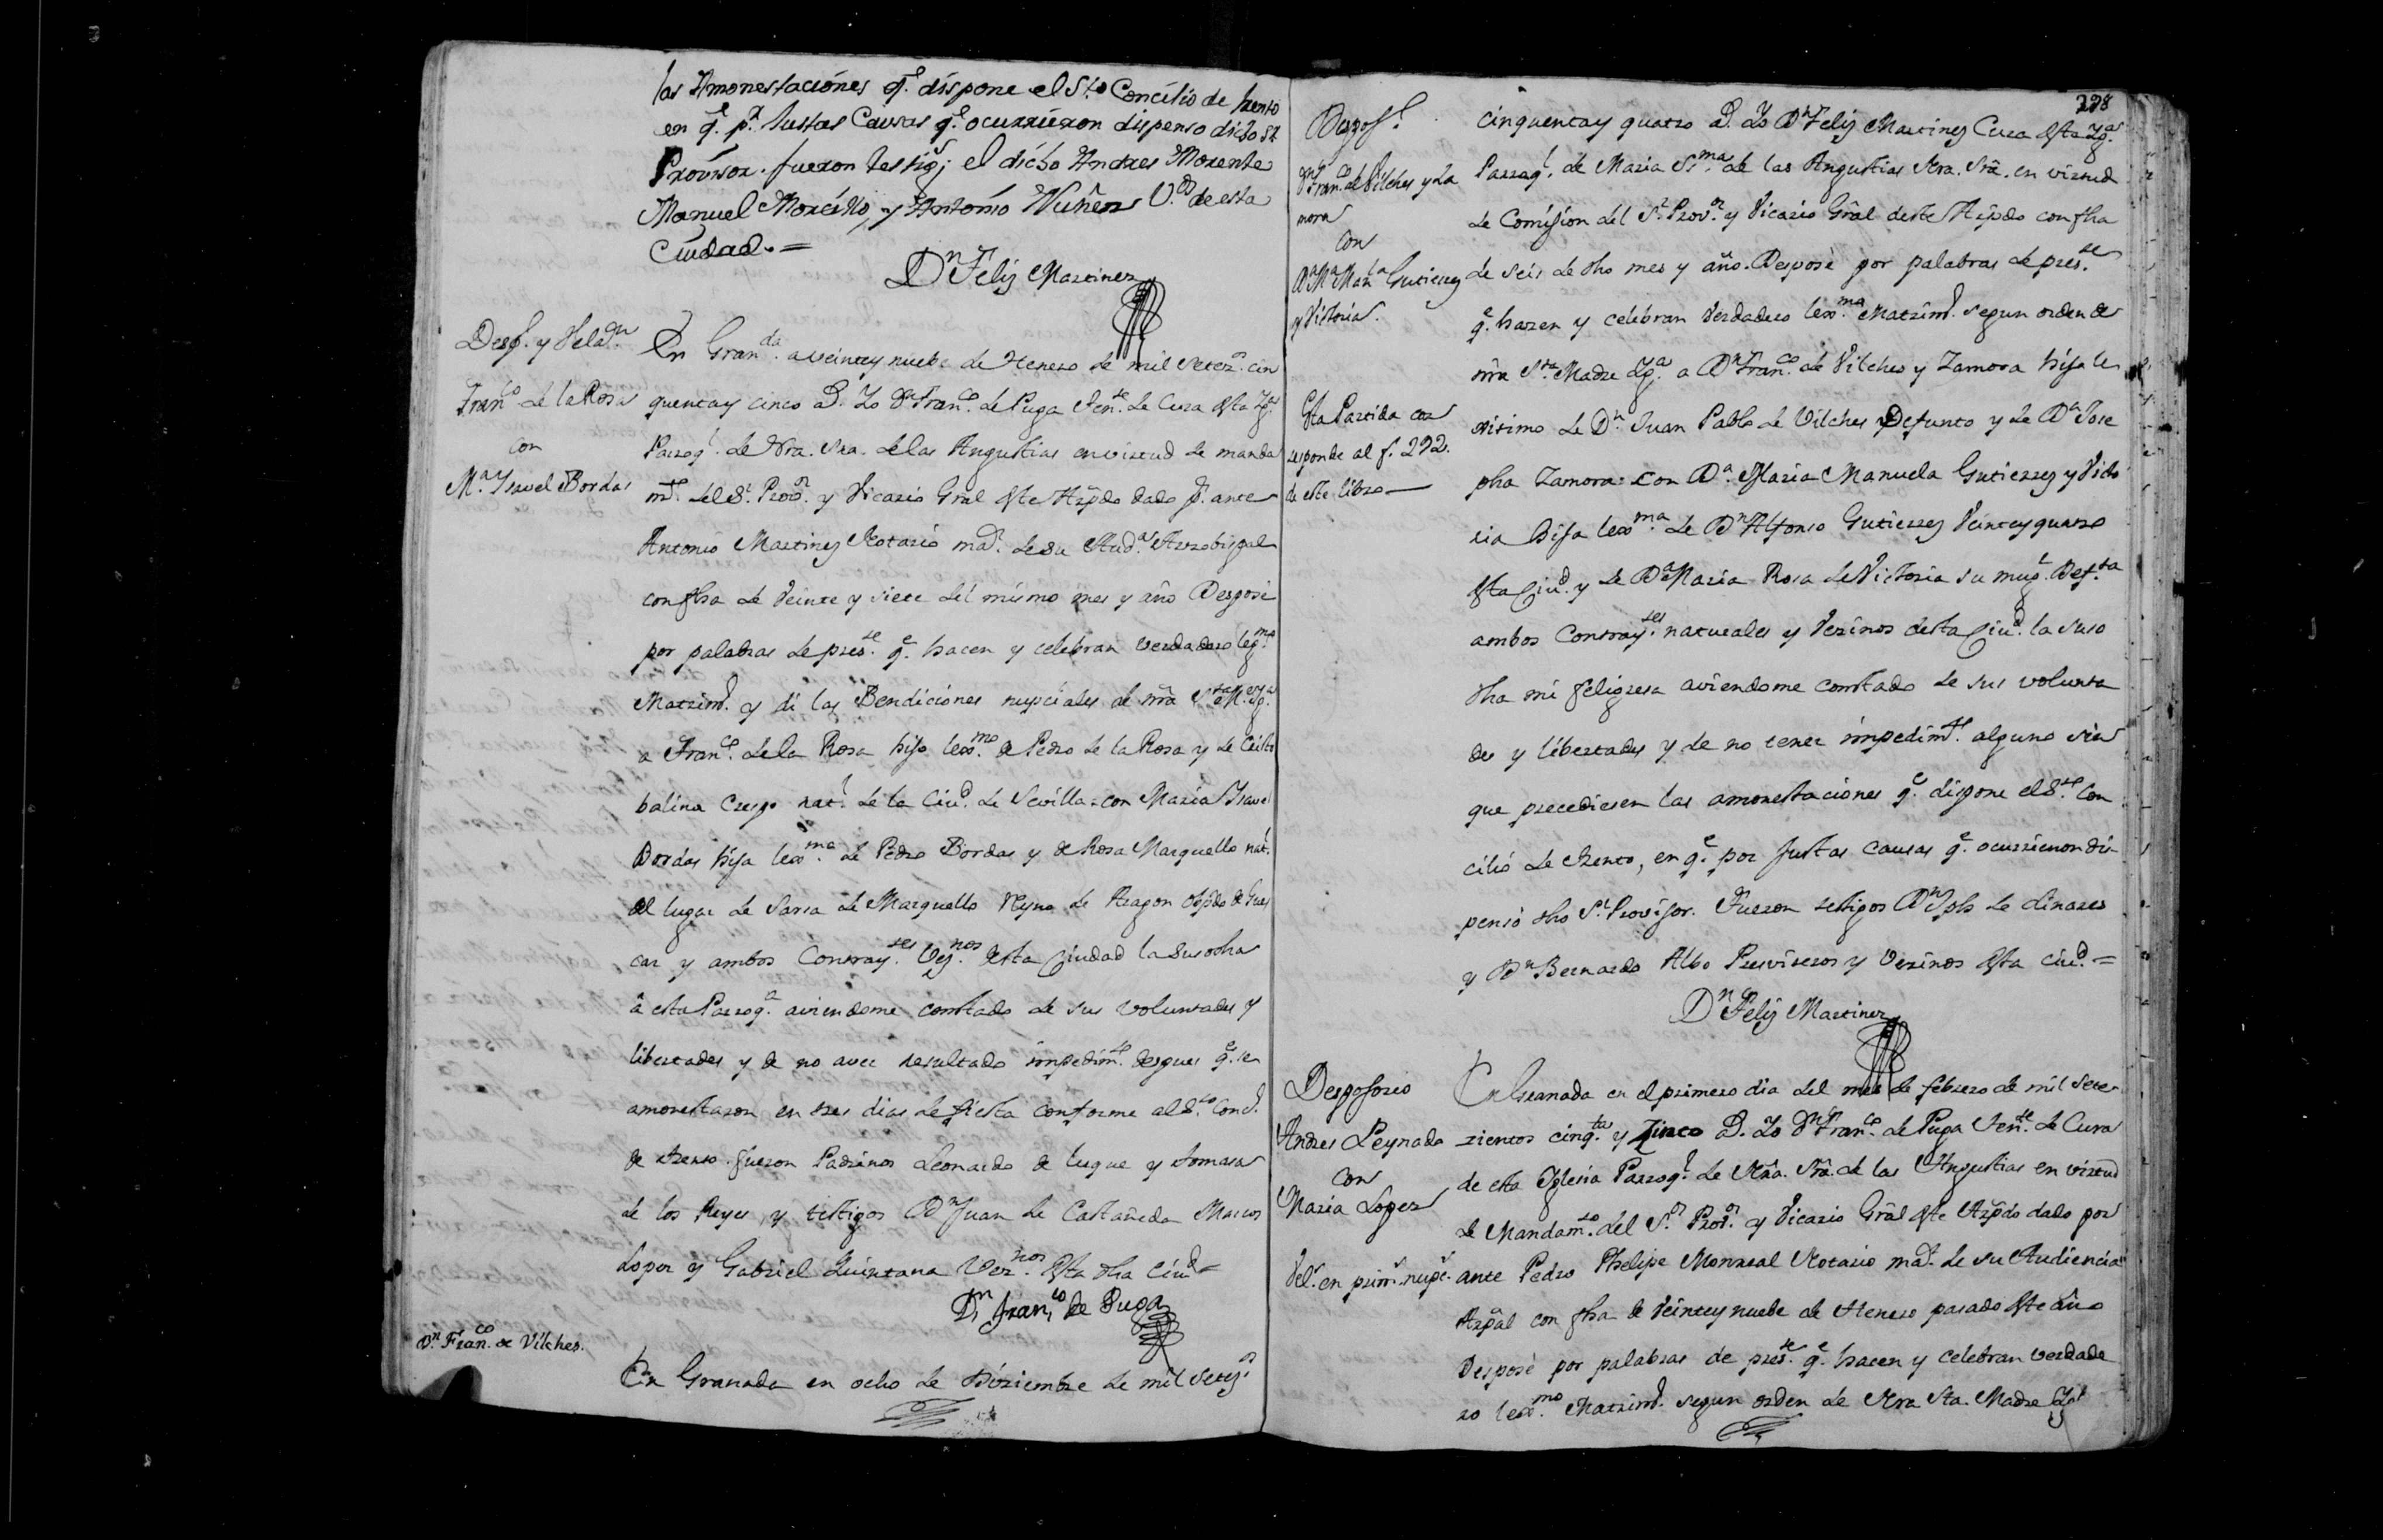 las Amonestaciónes q.e dispone el S.to Concilio de trento
en q.e p.r Justas Causas q.e ocurriéron dispenso dicho S.r
Provisor. fueron testig.s el dicho Andres Morente
Manuel Morcillo, y Antonio Nuñez V.os de esta
Ciudad. =
D.n Feliz Martinez
Desp.s y Velad.n
Fran.co de la Rosa
con
M.a Ysavel Bordas
En Gran.da a veintey nuebe de Henero de mil setez.s cin
quentay cinco a.s Yo D.n Fran.co de Puga Then.te de Cura desta Yg.a
Parroq.l de Nra. Sra. de las Angustias en virtud de manda
m.to del S.r Prov.or y Vicario Gral deste Arzpdo dado p.r ante
Antonio Martinez Notario ma.r de su Aud.a Arzobispal
con fha de Veinte y siete del mismo mes y año Desposè
por palabras de pres.te q.e hacen y celebran verdadero leg.mo
Matrim.o y di las Bendiciones nupciales de nra S.ta M.e Yg.a
a Fran.co de la Rosa hijo lexo.mo de Pedro de la Rosa y de Cristo
balina Crespo nat.l de la Ciu.d de Sevilla = con Maria Ysavel
Bordas hija lexo.ma de Pedro Bordas y de Rosa Marquello nat.l
del lugar de Sarsa de Marquello Reyno de Aragon obpdo de Gues
car y ambos Contray.tes Vez.nos desta Ciudad la susodha
â esta Parroq.a aviendome constado de sus voluntades y
libertades y de no aver resultado impedim.to despues q.e se
amonestaron en tres dias de fiesta conforme al S.to Conc.o
de trento. fueron Padrinos Leonardo de luque y tomasa
de los Reyes, y testigos D.n Juan de Castañeda Marcos
Lopez y Gabriel Quintana Vez.nos desta dha Ciu.d =
D.n fran.co de Puga
D.n Fran.co de Vilches.
En Granada en ocho de Diziembre de mil setez.s
228
Despos.o
D.n Fran.co de Vilches y Za
mora
con
D.a M.a Man.la Gutierrez
y Victoria.
Esta Partida cor
responde al f. 292.
de este libro
cinquentay quatro a.s Yo D.n Feliz Martinez Cura desta Yg.a
Parroq.l de Maria S.ma de las Angustias Nra. Srã. en virtud
de Comision del S.r Prov.or y Vicario Grâl deste Arzpdo con fha
de seis de dho mes y año. Desposè por palabras de pres.te
q.e hazen y celebran Verdadero lexo.mo Matrim.o segun orden de
nra S.ta Madre Yg.a a D.n Fran.co de Vilches y Zamora hijo le
xitimo de D.n Juan Pablo de Vilches Defunto y de D.a Jose
pha Zamora: con D.a Maria Manuela Gutierrez y Victo
ria hija lexo.ma de D.n Alfonso Gutierrez Veinteyquatro
desta Ciu.d y de D.a Maria Rosa de Victoria su mug.r Def.ta
ambos Contray.tes naturales y Vezinos desta Ciu.d la suso
dha mi feligresa aviendome constado de sus volunta
des y libertades y de no tener impedim.to alguno sin
que precediesen las amonestaciones q.e dispone el S.to Con
cilio de trento, en q.e por justas causas q.e ocurrieron dis-
pensò dho S.r Provisor. Fueron testigos D.n Jph de Linares
y D.n Bernardo Albo Presviteros y Vezinos desta Ciu.d =
D.n Feliz Martinez
Desposorio
Andres Peynado
con
Maria Lopez
Vel.s en prim.s nupc.s
En Granada en el primero dia del mes de febrero de mil sete-
zientos cinq.ta y Zinco a.s Yo D.n Fran.co de Puga Ten.te de Cura
de esta Yglesia Parroq.l de Nrâ. Srâ. de las Angustias en virtud
de Mandam.to del S.or Prov.or y Vicario Grâl deste Arzpdo dado por
ante Pedro Phelipe Monreal Notario ma.r de su Audiencia
Arzpal con fha de Veintey nuebe de Henero pasado deste año
Desposè por palabras de pres.te q.e hacen y celebran verdade
ro lexo.mo Matrim.o segun orden de Nra Sta. Madre Yg.a